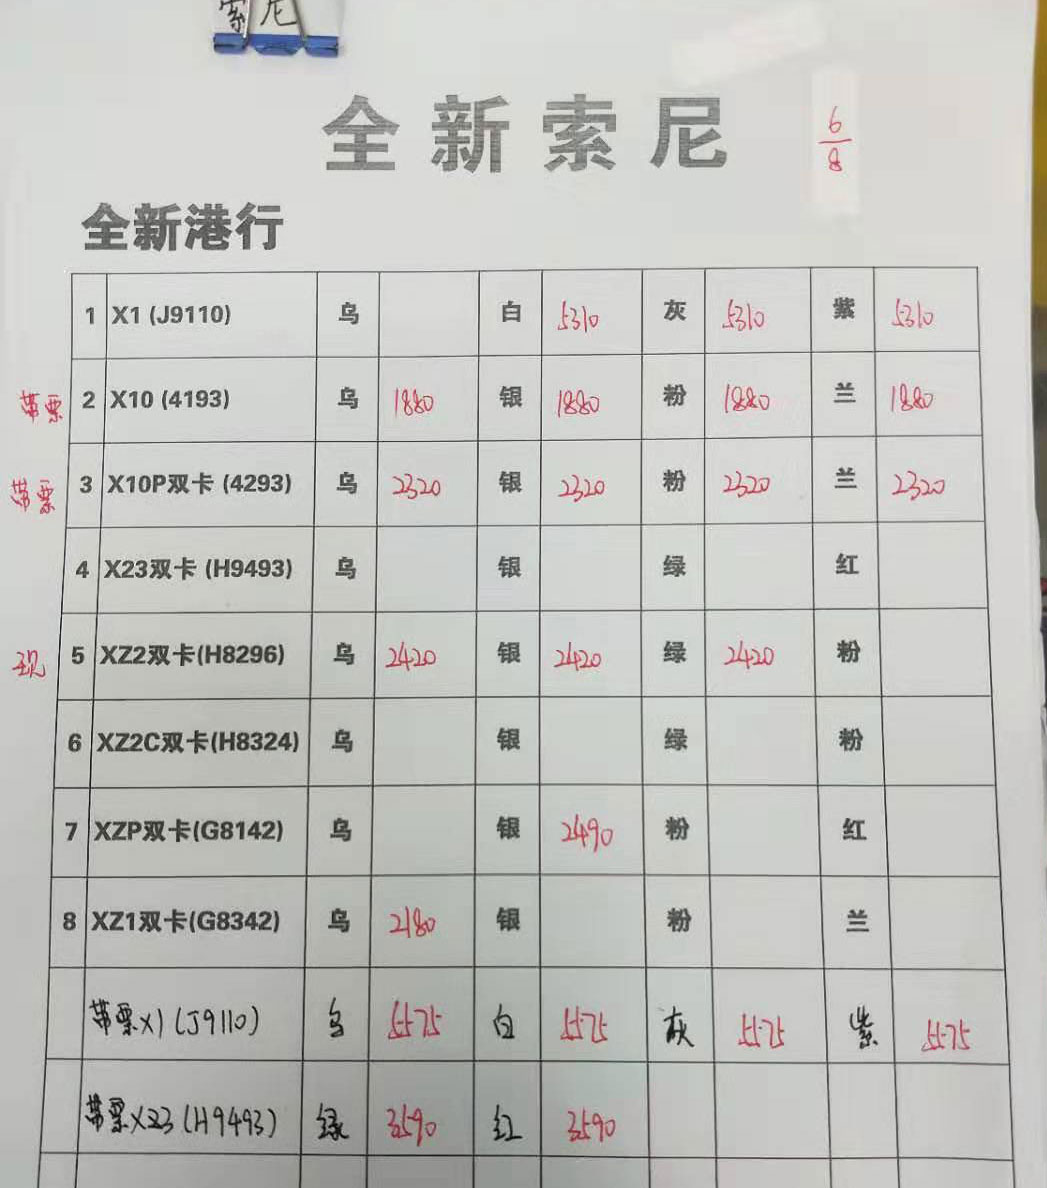 索尼
全新索尼
6/8
全新港行
1 X1 (J9110) 乌 白 5310 灰 5310 紫 5310
带票 2 X10 (4193) 乌 1880 银 1880 粉 1880 兰 1880
带票 3 X10P双卡 (4293) 乌 2320 银 2320 粉 2320 兰 2320
4 X23双卡 (H9493) 乌 银 绿 红
现 5 XZ2双卡(H8296) 乌 2420 银 2420 绿 2420 粉
6 XZ2C双卡(H8324) 乌 银 绿 粉
7 XZP双卡(G8142) 乌 银 2490 粉 红
8 XZ1双卡(G8342) 乌 2180 银 粉 兰
带票X1(J9110) 乌 5575 白 5575 灰 5575 紫 5575
带票X23(H9493) 绿 3590 红 3590